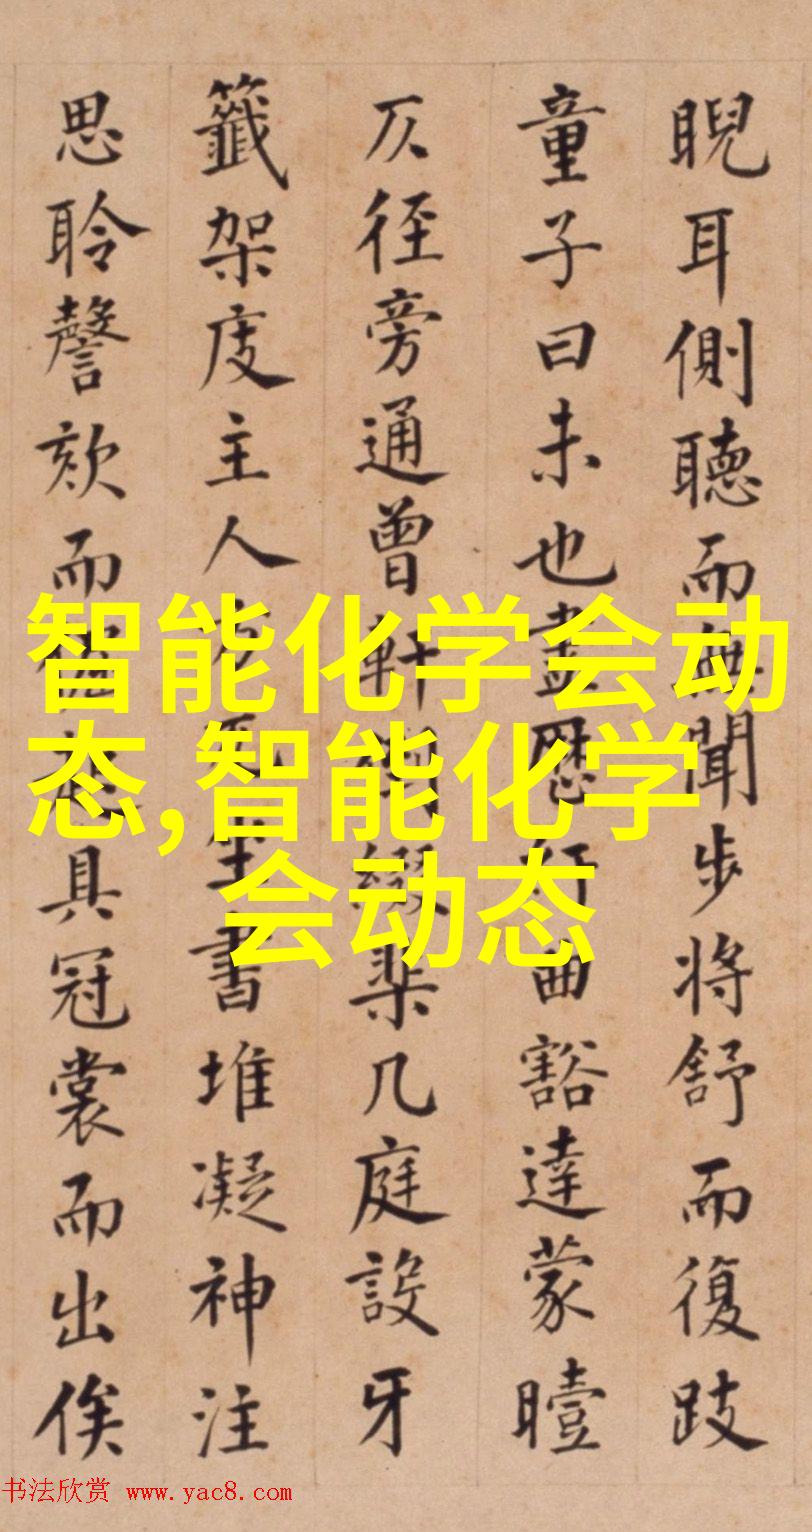 睨耳側聽而無聞步將舒而復跂
童子曰未也盡歷紆曲豁達蒙曀
仄徑旁通曾軒綴棐几庭設牙
籤架庋主人方兀坐書堆凝神注
思聆謦欬而具冠裳而出俟
智能化学会动
态,智能化学
会动态
书法欣赏 www.yac8.com